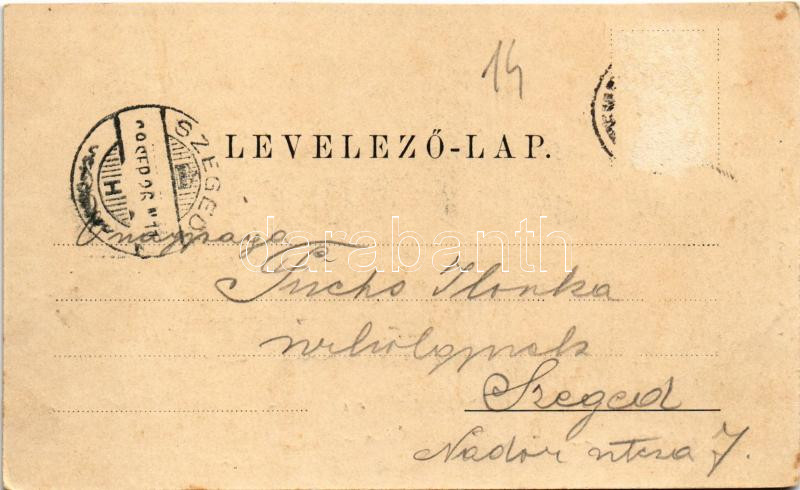 14
LEVELEZŐ-LAP.
SZEGED
Őnagysága
Fuchs Ilonka
úrhölgynek
Szeged
Nádor utcza 7.
darabanth